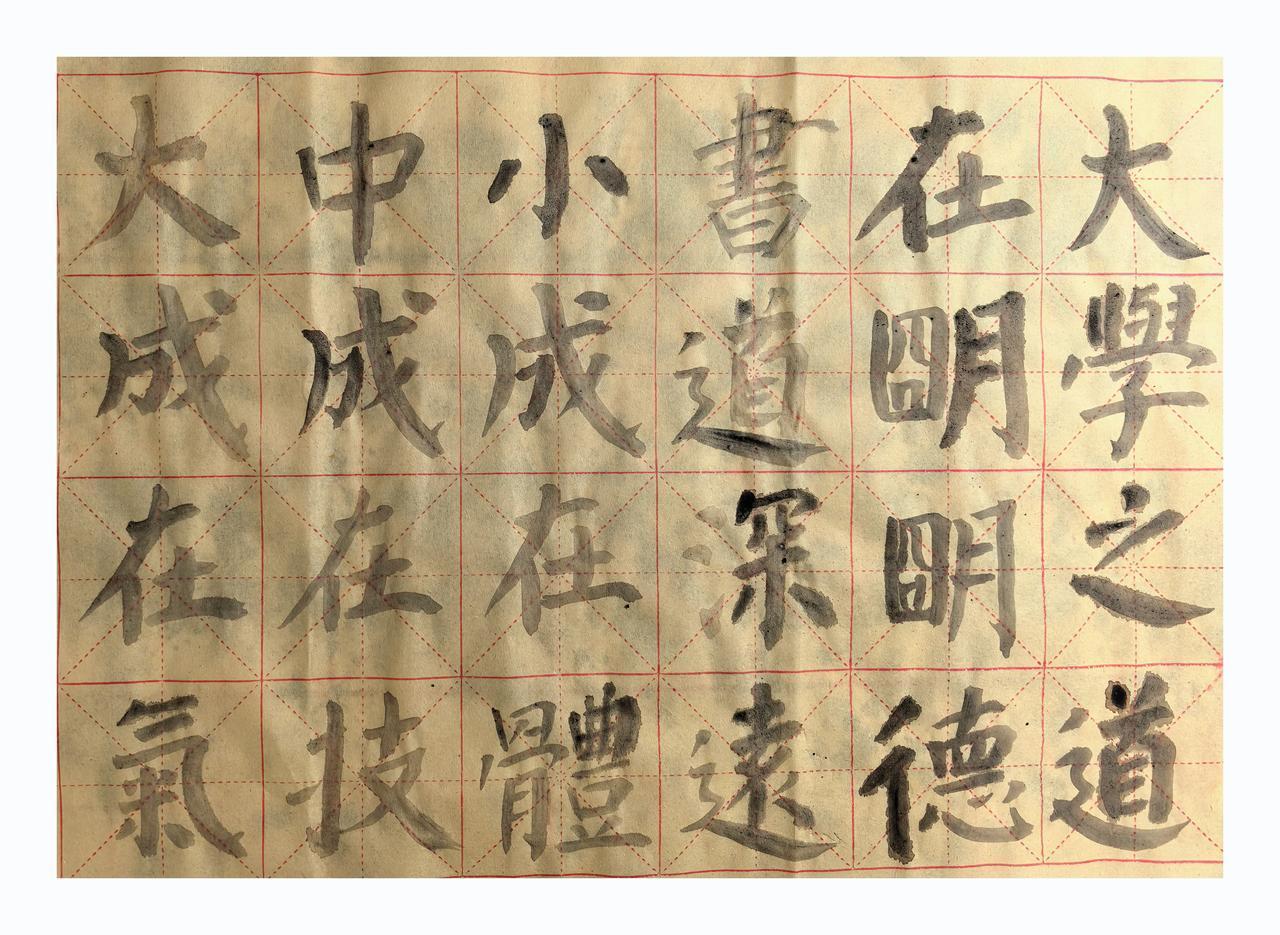 大學之道
在朙朙德
書道深遠
小成在體
中成在技
大成在氣